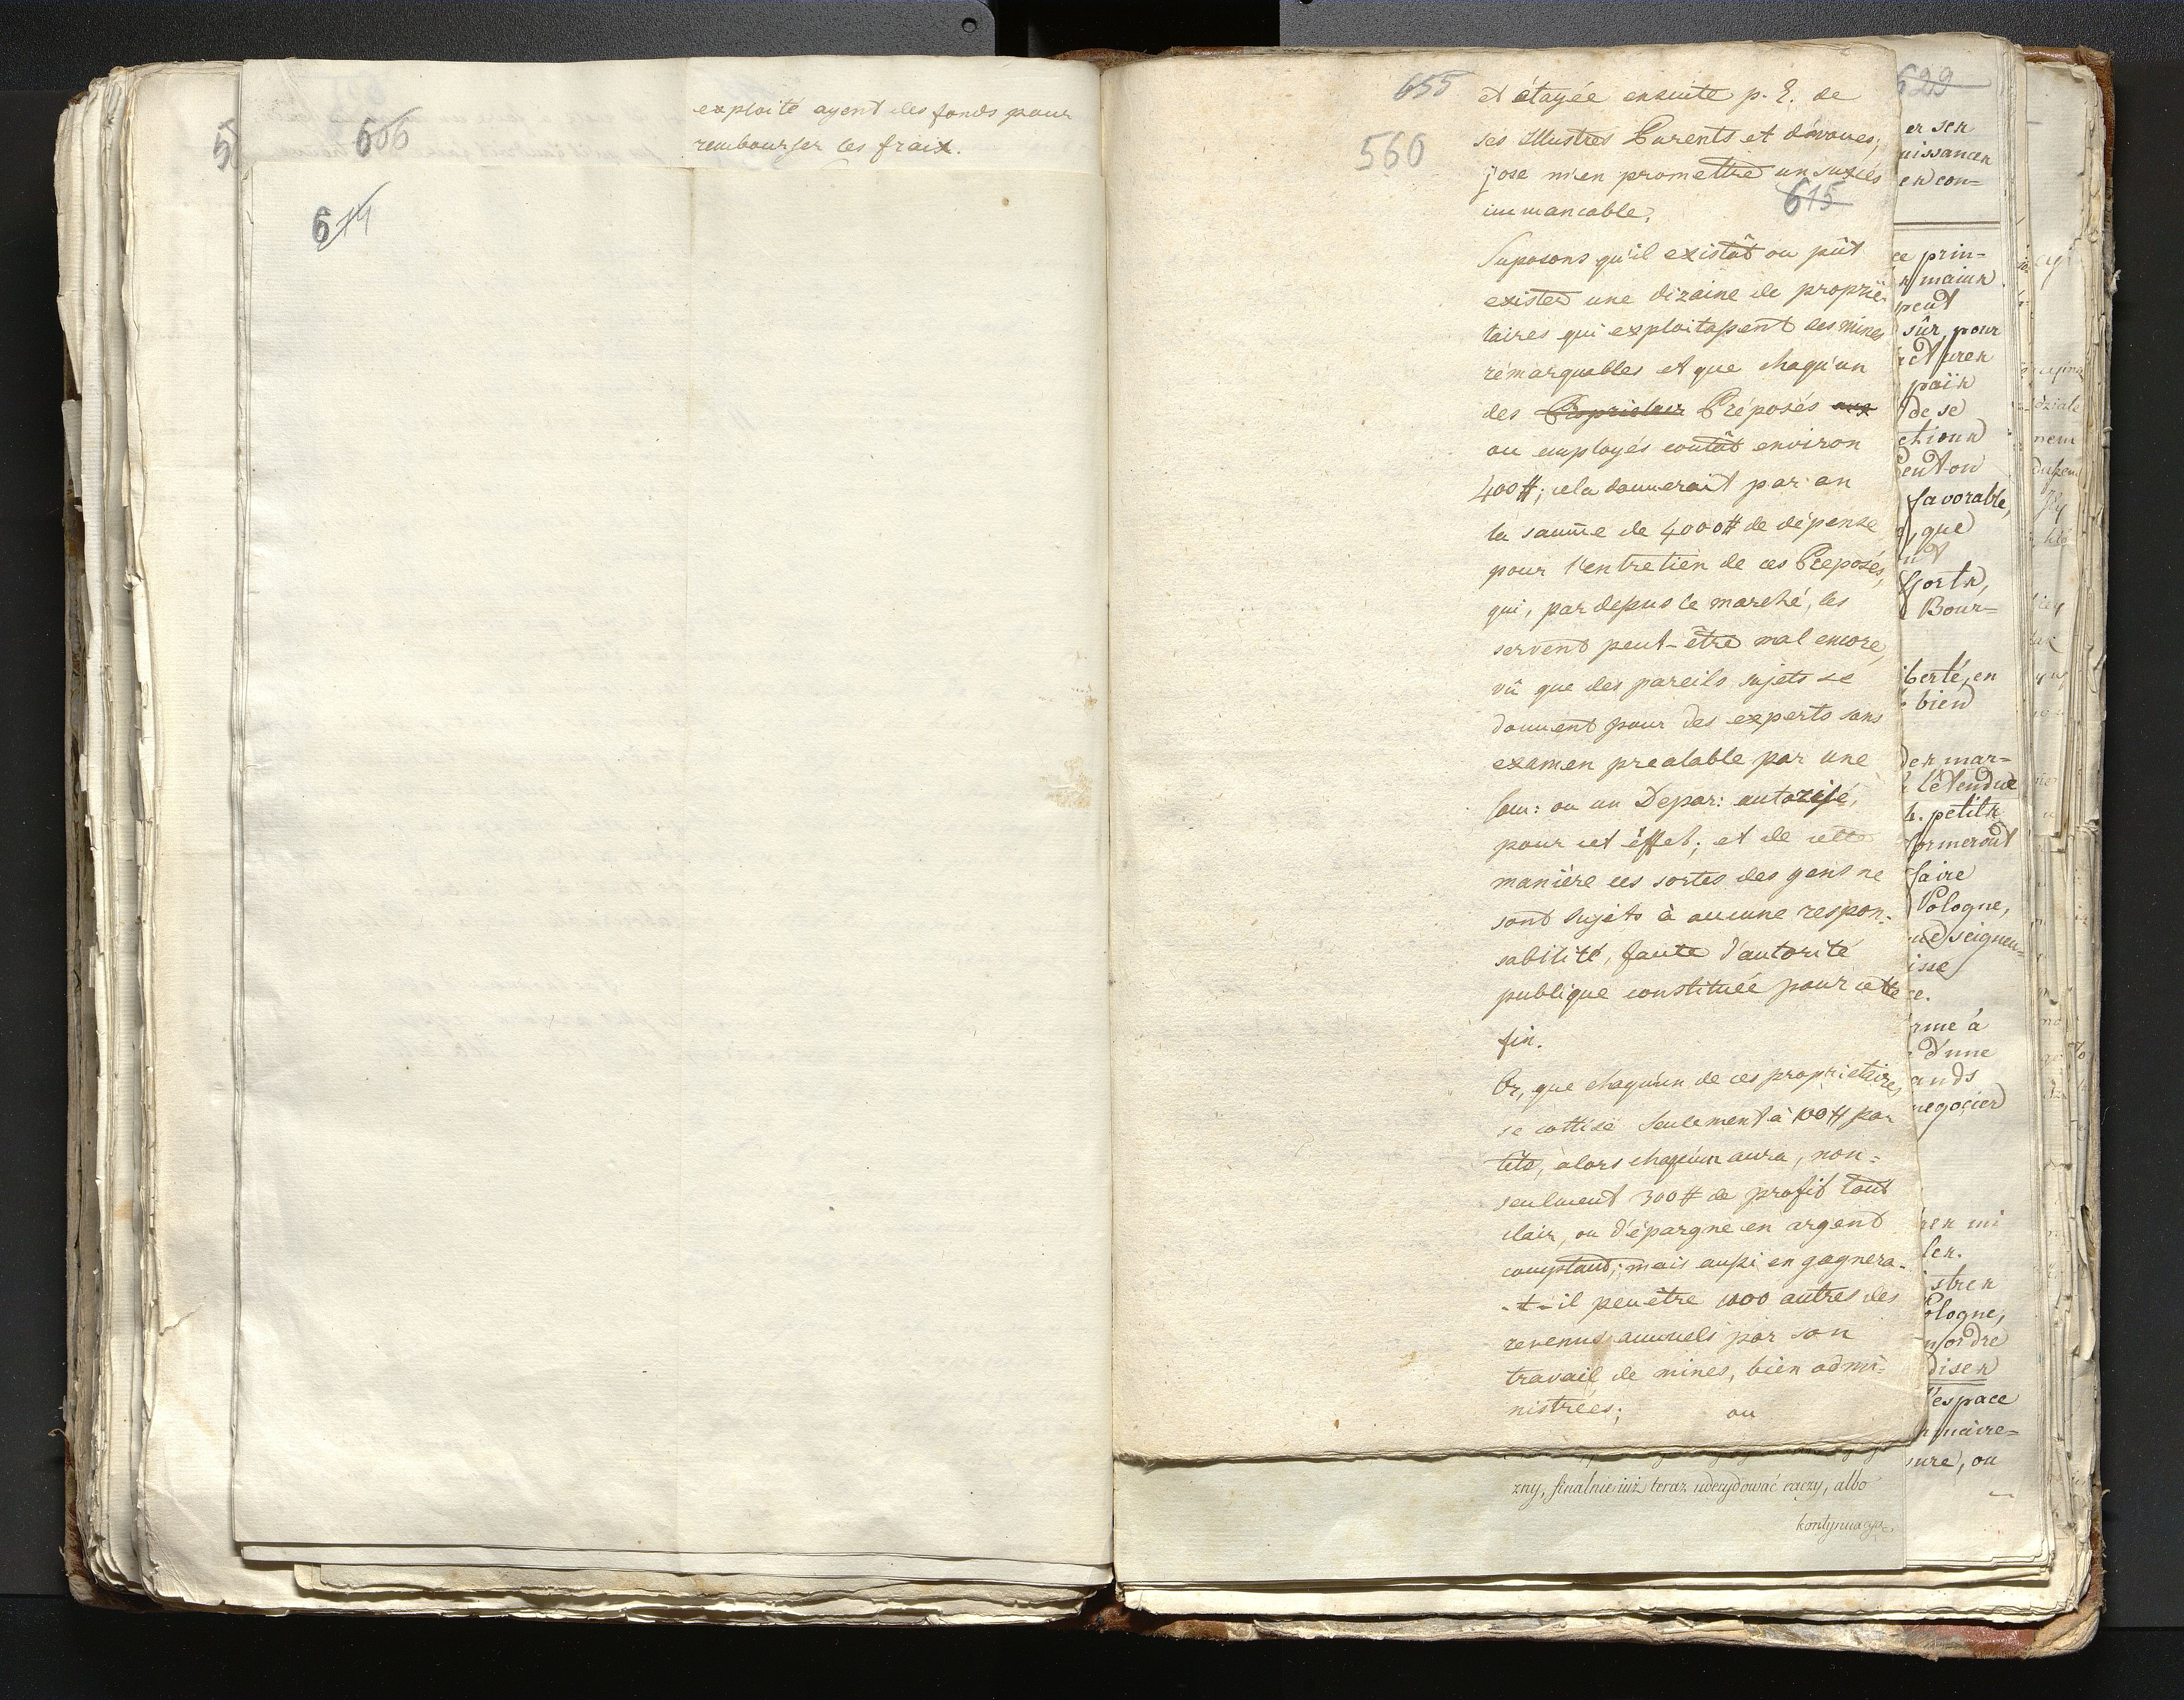 606
exploité ayent des fonds pour
rembourser les fraix.
614
655
560
615
et étayée ensuite p. E. de
ses Illustres Parents et dévoués,
j'ose m'en promettre un succés
immancable.
Suposons qu'il existât ou pût
exister une dizaine de proprié-
taires qui exploitassent des mines
rémarquables et que chaqu'un
des Proprietair Préposés aux
ou employés coutât environ
400#; cela donnerait par an
la somme de 4000# de dépense
pour l'entretien de ces Préposés,
qui, par dessus le marché, les
servent peut-être mal encore,
vû que des pareils sujets se
donnent pour des experts sans
examen prealable par une
Com: ou un Depar: autorisé,
pour cet éffet; et de cette
manière ces sortes des gens ne
sont sujets à aucune respon-
sabilité, faute d'autorité
publique constituée pour cette
fin.
Or, que chaqu'un de ces proprietaires
se cottise seulement à 100# par
tête, alors chaqu'un aura, non=
seulment 300# de profit tout
clair, ou d'épargne en argent
comptant; mais aussi en gagnera-
-t-il peuêtre 1000 autres des
revenus annuels par son
travail de mines, bien admi-
nistrées; ou
zny, finalnie iuż teraz udecydować raczy, albo
kontynuacya
629
er sen
uissancen
en con=
ce prin=
peut
sûr, pour
païn
de se
favorable,
que
Bour=
iberté, en
bien
den mar=
l'étendue
petitn
formeront
faire
Pologne,
isse
ce.
rme à
d'une
ands
negocier
len.
Pologne,
n ordre
disen
l'espace
sure, ou